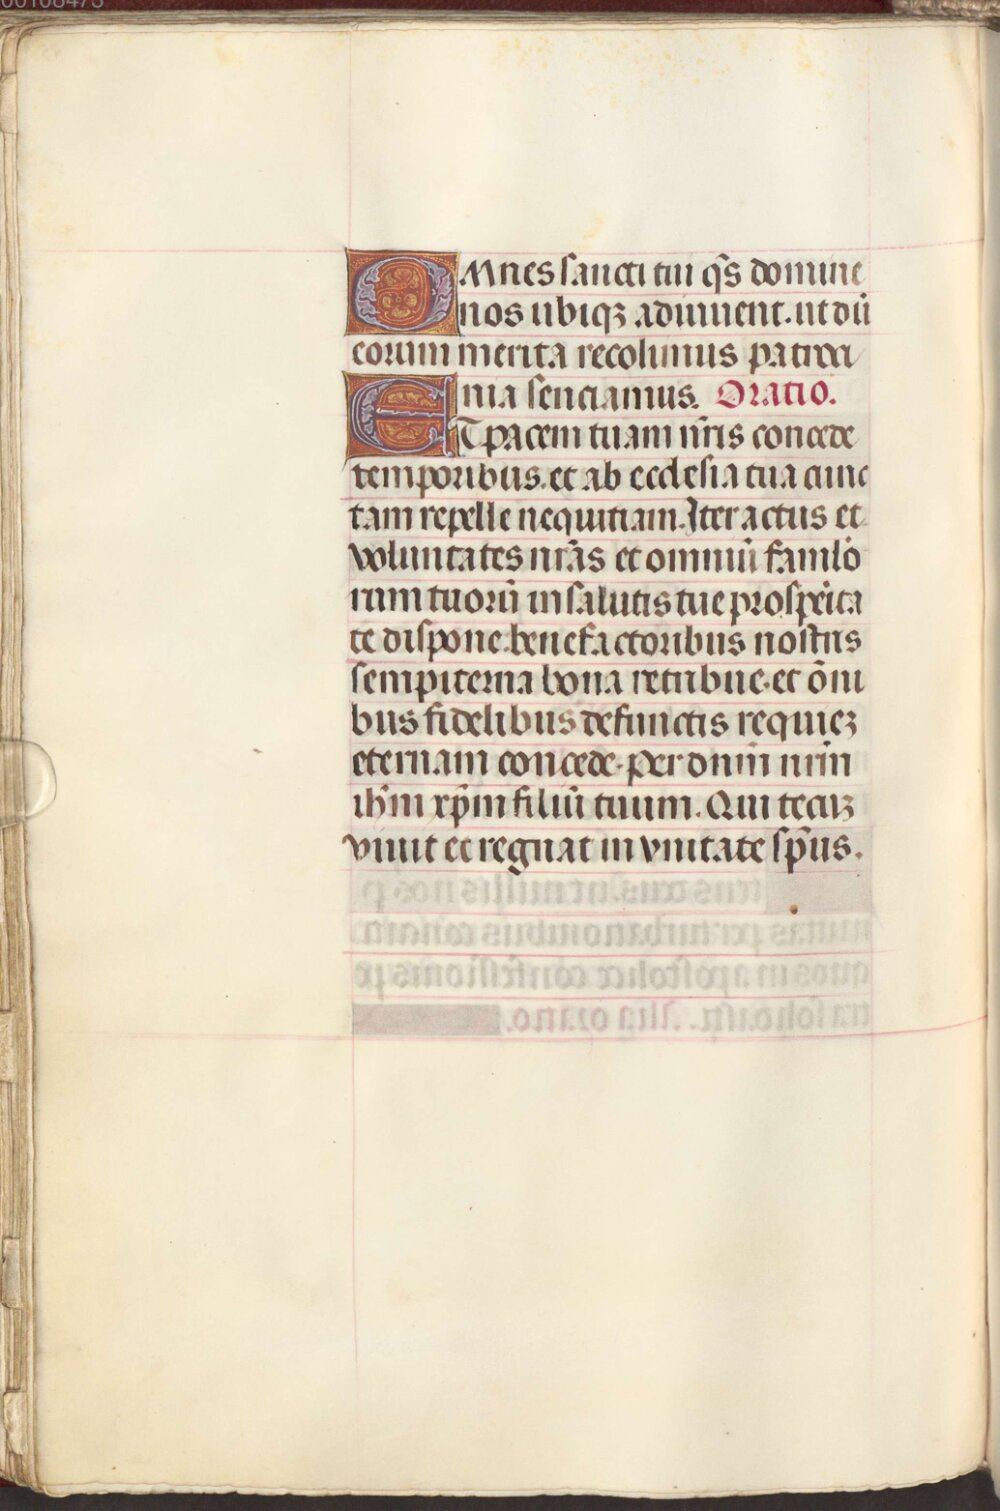 OMnes sancti tui q̄s domine
nos ubiqꝫ adiuuent. ut dū
eorum merita recolimus patroci
nia senciamus. Oratio.
ET pacem tuam nr̄is concede
temporibus. et ab ecclesia tua cunc
tam repelle nequitiam. Iter actus et
voluntates nrās et omniū famlo
rum tuorū in salutis tue prosperita
te dispone. benefactoribus nostris
sempiterna bona retribue. et ōni
bus fidelibus defunctis requieꝫ
eternam concede. per dnm̄ nrm̄
ihm̄ xp̄m filiū tuum. Qui tecuꝫ
viuit et regnat in vnitate sp̄us.